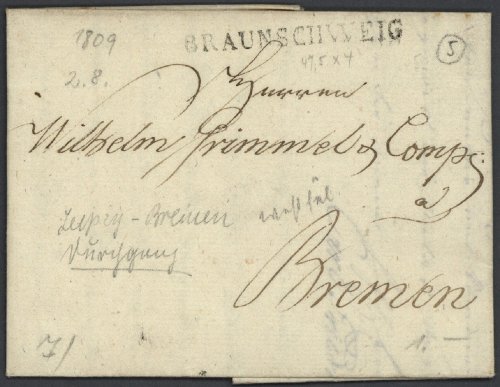 1809
2.8.
BRAUNSCHWEIG
47,5 x 4
5
Herren
Wilhelm Grimmel & Comp:
à
Leipzig - Bremen westfäl
Durchgang
Bremen
7/
1. —